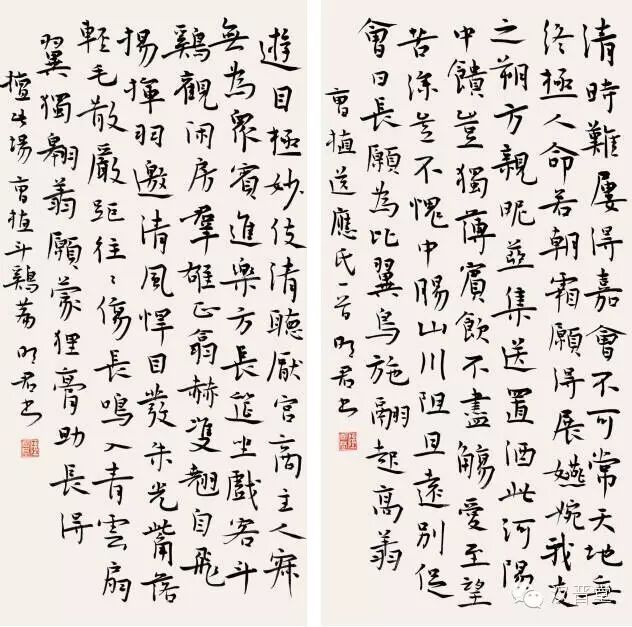 清時難屢得嘉會不可常天地無
終極人命若朝霜願得展嬿婉我友
之朔方親昵並集送置酒此河陽
中饋豈獨薄賓飲不盡觴愛至望
苦深豈不愧中腸山川阻且遠別促
會日長願為比翼鳥施翮起高翥
曹植送應氏一首 明君书
遊目極妙伎清聽厭宮商主人寂
無為眾賓進樂方長筵坐戲客斗
鷄觀閑房羣雄正翕赫雙翹自飛
揚揮羽邀清風悍目發朱光觜落
輕毛散嚴距往〻傷長鳴入青雲扇
翼獨翱翥願蒙狸膏助長得
擅此場 曹植斗鷄篇 明君书